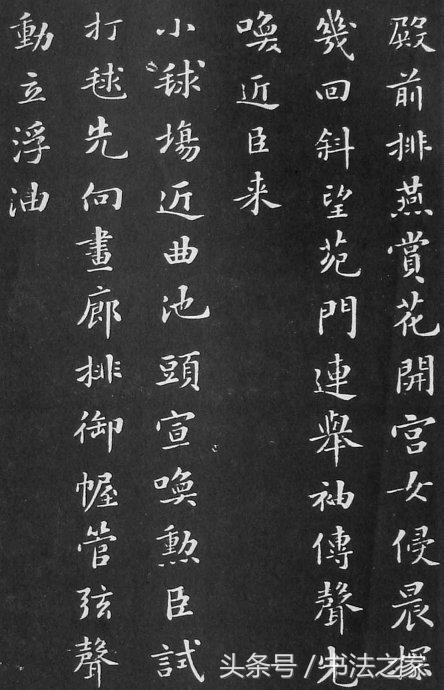 殿前排燕賞花開宮女侵晨探
幾回斜望苑門連舉袖傳聲先
喚近臣来
小毬場近曲池頭宣喚勲臣試
打毬先向畫廊排御幄管弦聲
動立浮油
头条号 / 书法之家